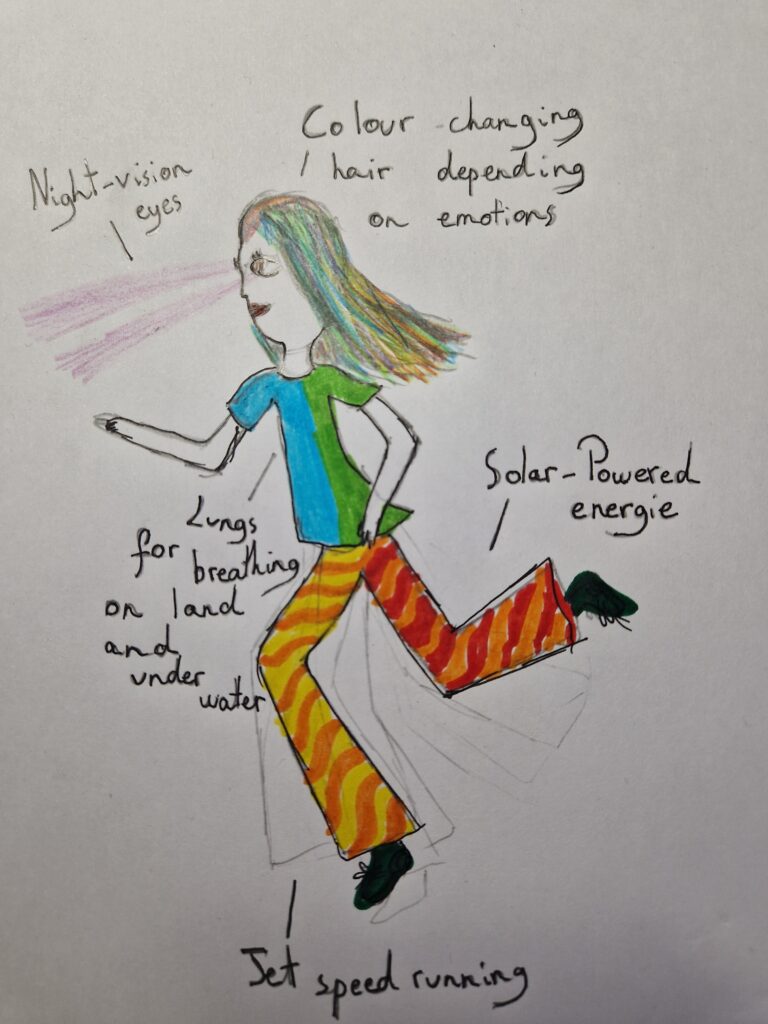 Colour changing
hair depending
on emotions
Night-vision
eyes
Solar-Powered
energie
Lungs
for breathing
on land
and
under
water
Jet speed running